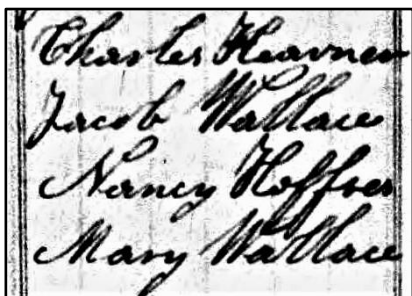 Charles Heavner
Jacob Wallace
Nancy Hoffner
Mary Wallace